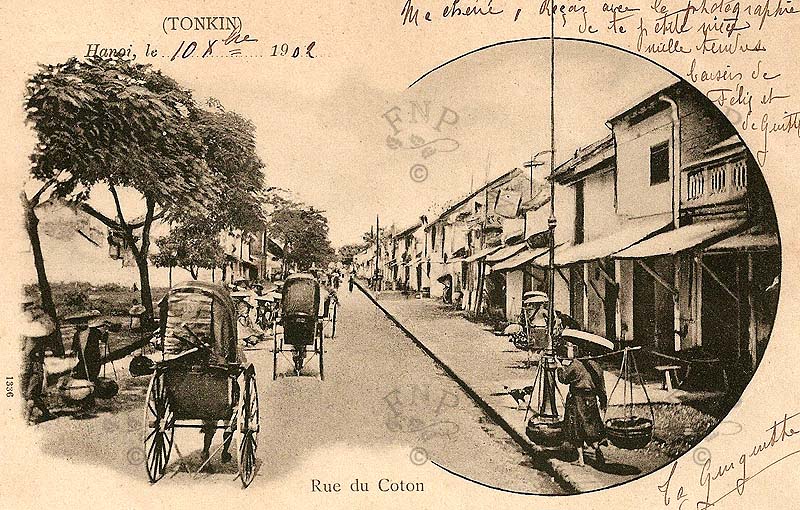 (TONKIN)
Hanoi, le 10 Xbre 1902
Ma chérie, Reçois avec la photographie
de ta petite nièce
mille tendres
baisers de
Félix et
de Guitte
FNP
©
FNP
©
FNP
©
1336
Rue du Coton
Ta